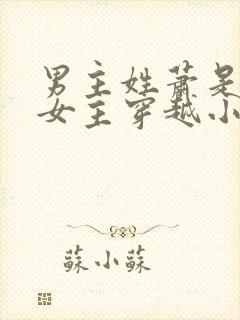 男主姓萧是
女主穿越小
蘇小蘇